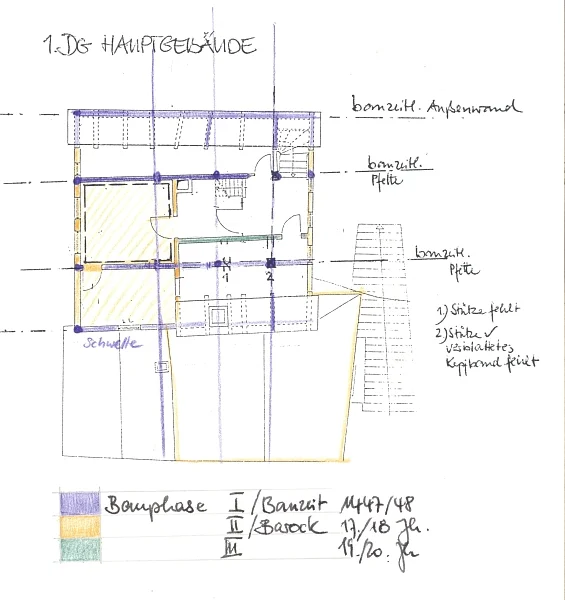 1.DG HAUPTGEBÄUDE
bauzeitl. Außenwand
bauzeitl.
Pfette
bauzeitl.
Pfette
1
2
1) Stütze fehlt
2) Stütze ✓
verblattetes
Kopfband fehlt
Schwelle
Bauphase I / Bauzeit 1447/48
II / Barock 17./18 Jh.
III 19./20. Jh